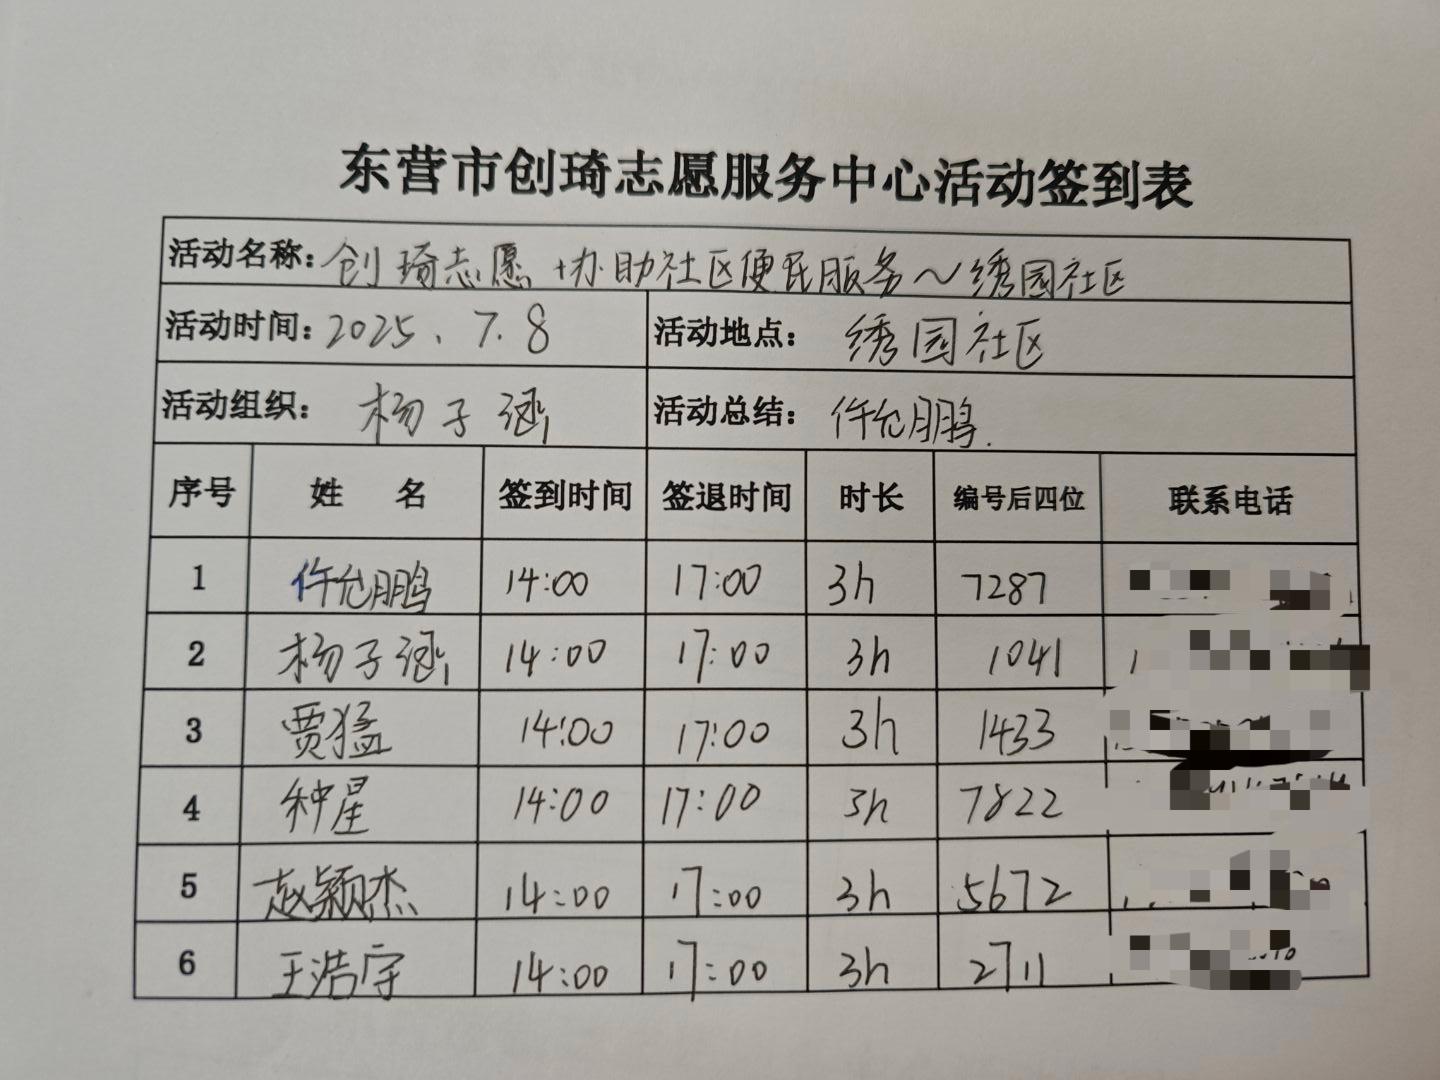 东营市创琦志愿服务中心活动签到表
活动名称：创琦志愿 协助社区便民服务～绣园社区
活动时间：2025、7.8 活动地点：绣园社区
活动组织：杨子涵 活动总结：仵允鹏.
序号 姓 名 签到时间 签退时间 时长 编号后四位 联系电话
1 仵允鹏 14:00 17:00 3h 7287
2 杨子涵 14:00 17:00 3h 1041
3 贾猛 14:00 17:00 3h 1433
4 种星 14:00 17:00 3h 7822
5 赵颖杰 14:00 17:00 3h 5672
6 王浩宇 14:00 17:00 3h 2711